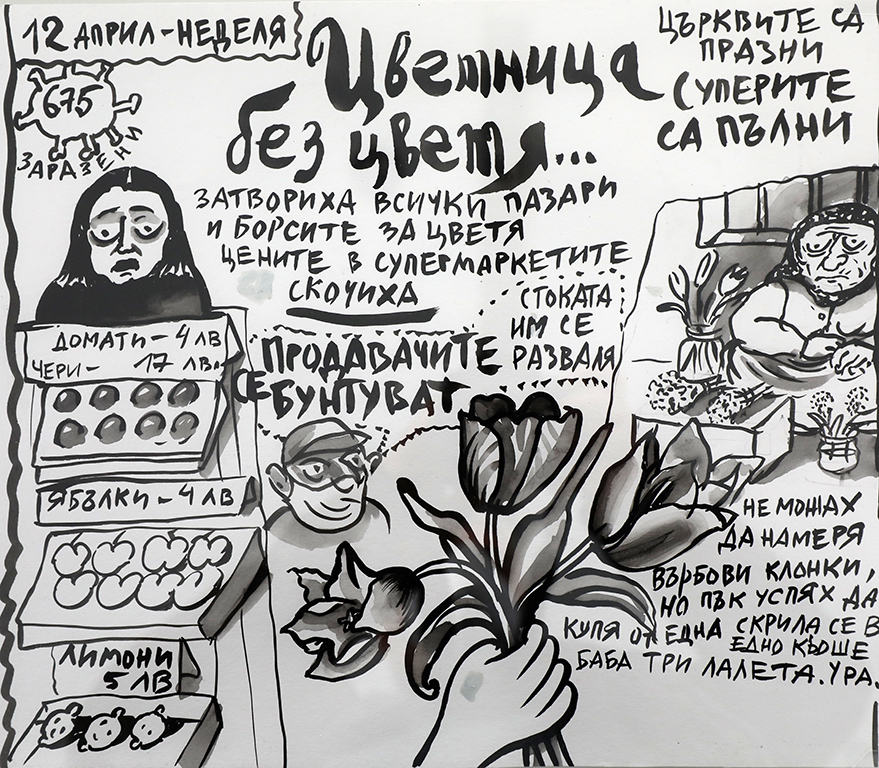 12 АПРИЛ - НЕДЕЛЯ
675
ЗАРАЗЕНИ
Цветница
без цветя...
ЦЪРКВИТЕ СА
ПРАЗНИ
СУПЕРИТЕ
СА ПЪЛНИ
ЗАТВОРИХА ВСИЧКИ ПАЗАРИ
И БОРСИТЕ ЗА ЦВЕТЯ
ЦЕНИТЕ В СУПЕРМАРКЕТИТЕ
СКОЧИХА
ПРОДАВАЧИТЕ
СЕ БУНТУВАТ
СТОКАТА
ИМ СЕ
РАЗВАЛЯ
ДОМАТИ - 4 ЛВ
ЧЕРИ - 17 ЛВ.
ЯБЪЛКИ - 4 ЛВ
ЛИМОНИ
5 ЛВ
НЕ МОЖАХ
ДА НАМЕРЯ
ВЪРБОВИ КЛОНКИ,
НО ПЪК УСПЯХ ДА
КУПЯ ОТ ЕДНА СКРИЛА СЕ В
ЕДНО КЬОШЕ
БАБА ТРИ ЛАЛЕТА. УРА.